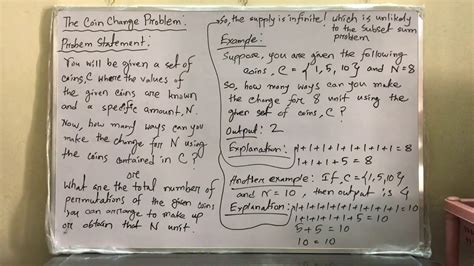 The Coin Change Problem:
Probem Statement:
You will be given a set of
coins, C where the values of
the given coins are known
and a specific amount, N.
Now, how many ways can you
make the change for N using
the coins contained in C?
or
What are the total number of
permutations of the given coins
you can arrange to make up
or obtain that N unit.
So, the supply is infinite! which is unlikely
to the subset sum
problem
Example:
Suppose, you are given the following
coins, C = {1, 5, 10} and N=8
So, how many ways can you make
the change for 8 unit using the
given set of coins, C?
Output: 2
Explanation: 1+1+1+1+1+1+1+1=8
1+1+1+5=8
Another example: If C={1,5,10}
and N=10, then output is 4
Explanation: 1+1+1+1+1+1+1+1+1+1=10
1+1+1+1+1+5=10
5+5=10
10=10